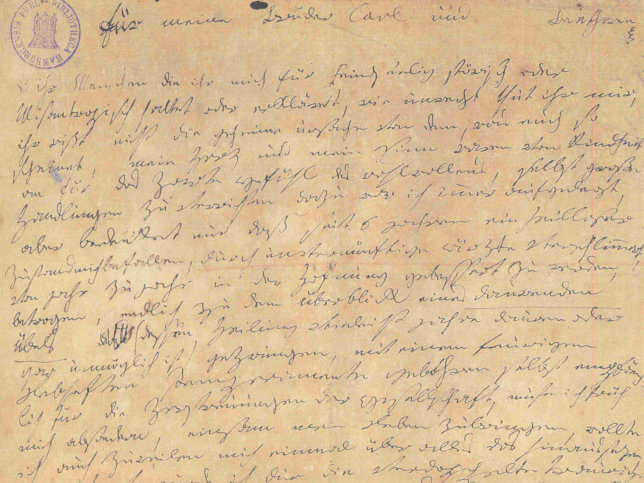 HAMBURGENSIS PUBLICA BIBLIOTHECA
für meine Brüder Carl und Beethowen
o ihr Menschen die ihr mich für Feindseelig störisch oder
Misantropisch haltet oder erkläret, wie unrecht thut ihr mir
ihr wißt nicht die geheime ursache von dem, was euch so
scheinet, mein Herz und mein Sinn waren von Kindheit
an für das Zarte gefühl des wohlwollens, selbst große
Handlungen zu verrichten dazu war ich immer aufgelegt,
aber bedenket nur daß seit 6 jahren ein heilloser
Zustand mich befallen, durch unvernünftige ärzte verschlimmert,
von jahr zu jahr in der Hofnung gebessert zu werden,
betrogen, endlich zu dem überblick eines daurenden
Übels (dessen Heilung vieleicht jahre dauern oder
gar unmöglich ist) gezwungen, mit einem feurigen
Lebhaften Temperamente gebohren selbst empfäng
lich für die Zerstreuungen der Gesellschaft, muste ich früh
mich absondern, einsam mein Leben zubringen, wollte
ich auch zuweilen mich einmal über alles das hinaussezen,
ich dur die verdoppelte